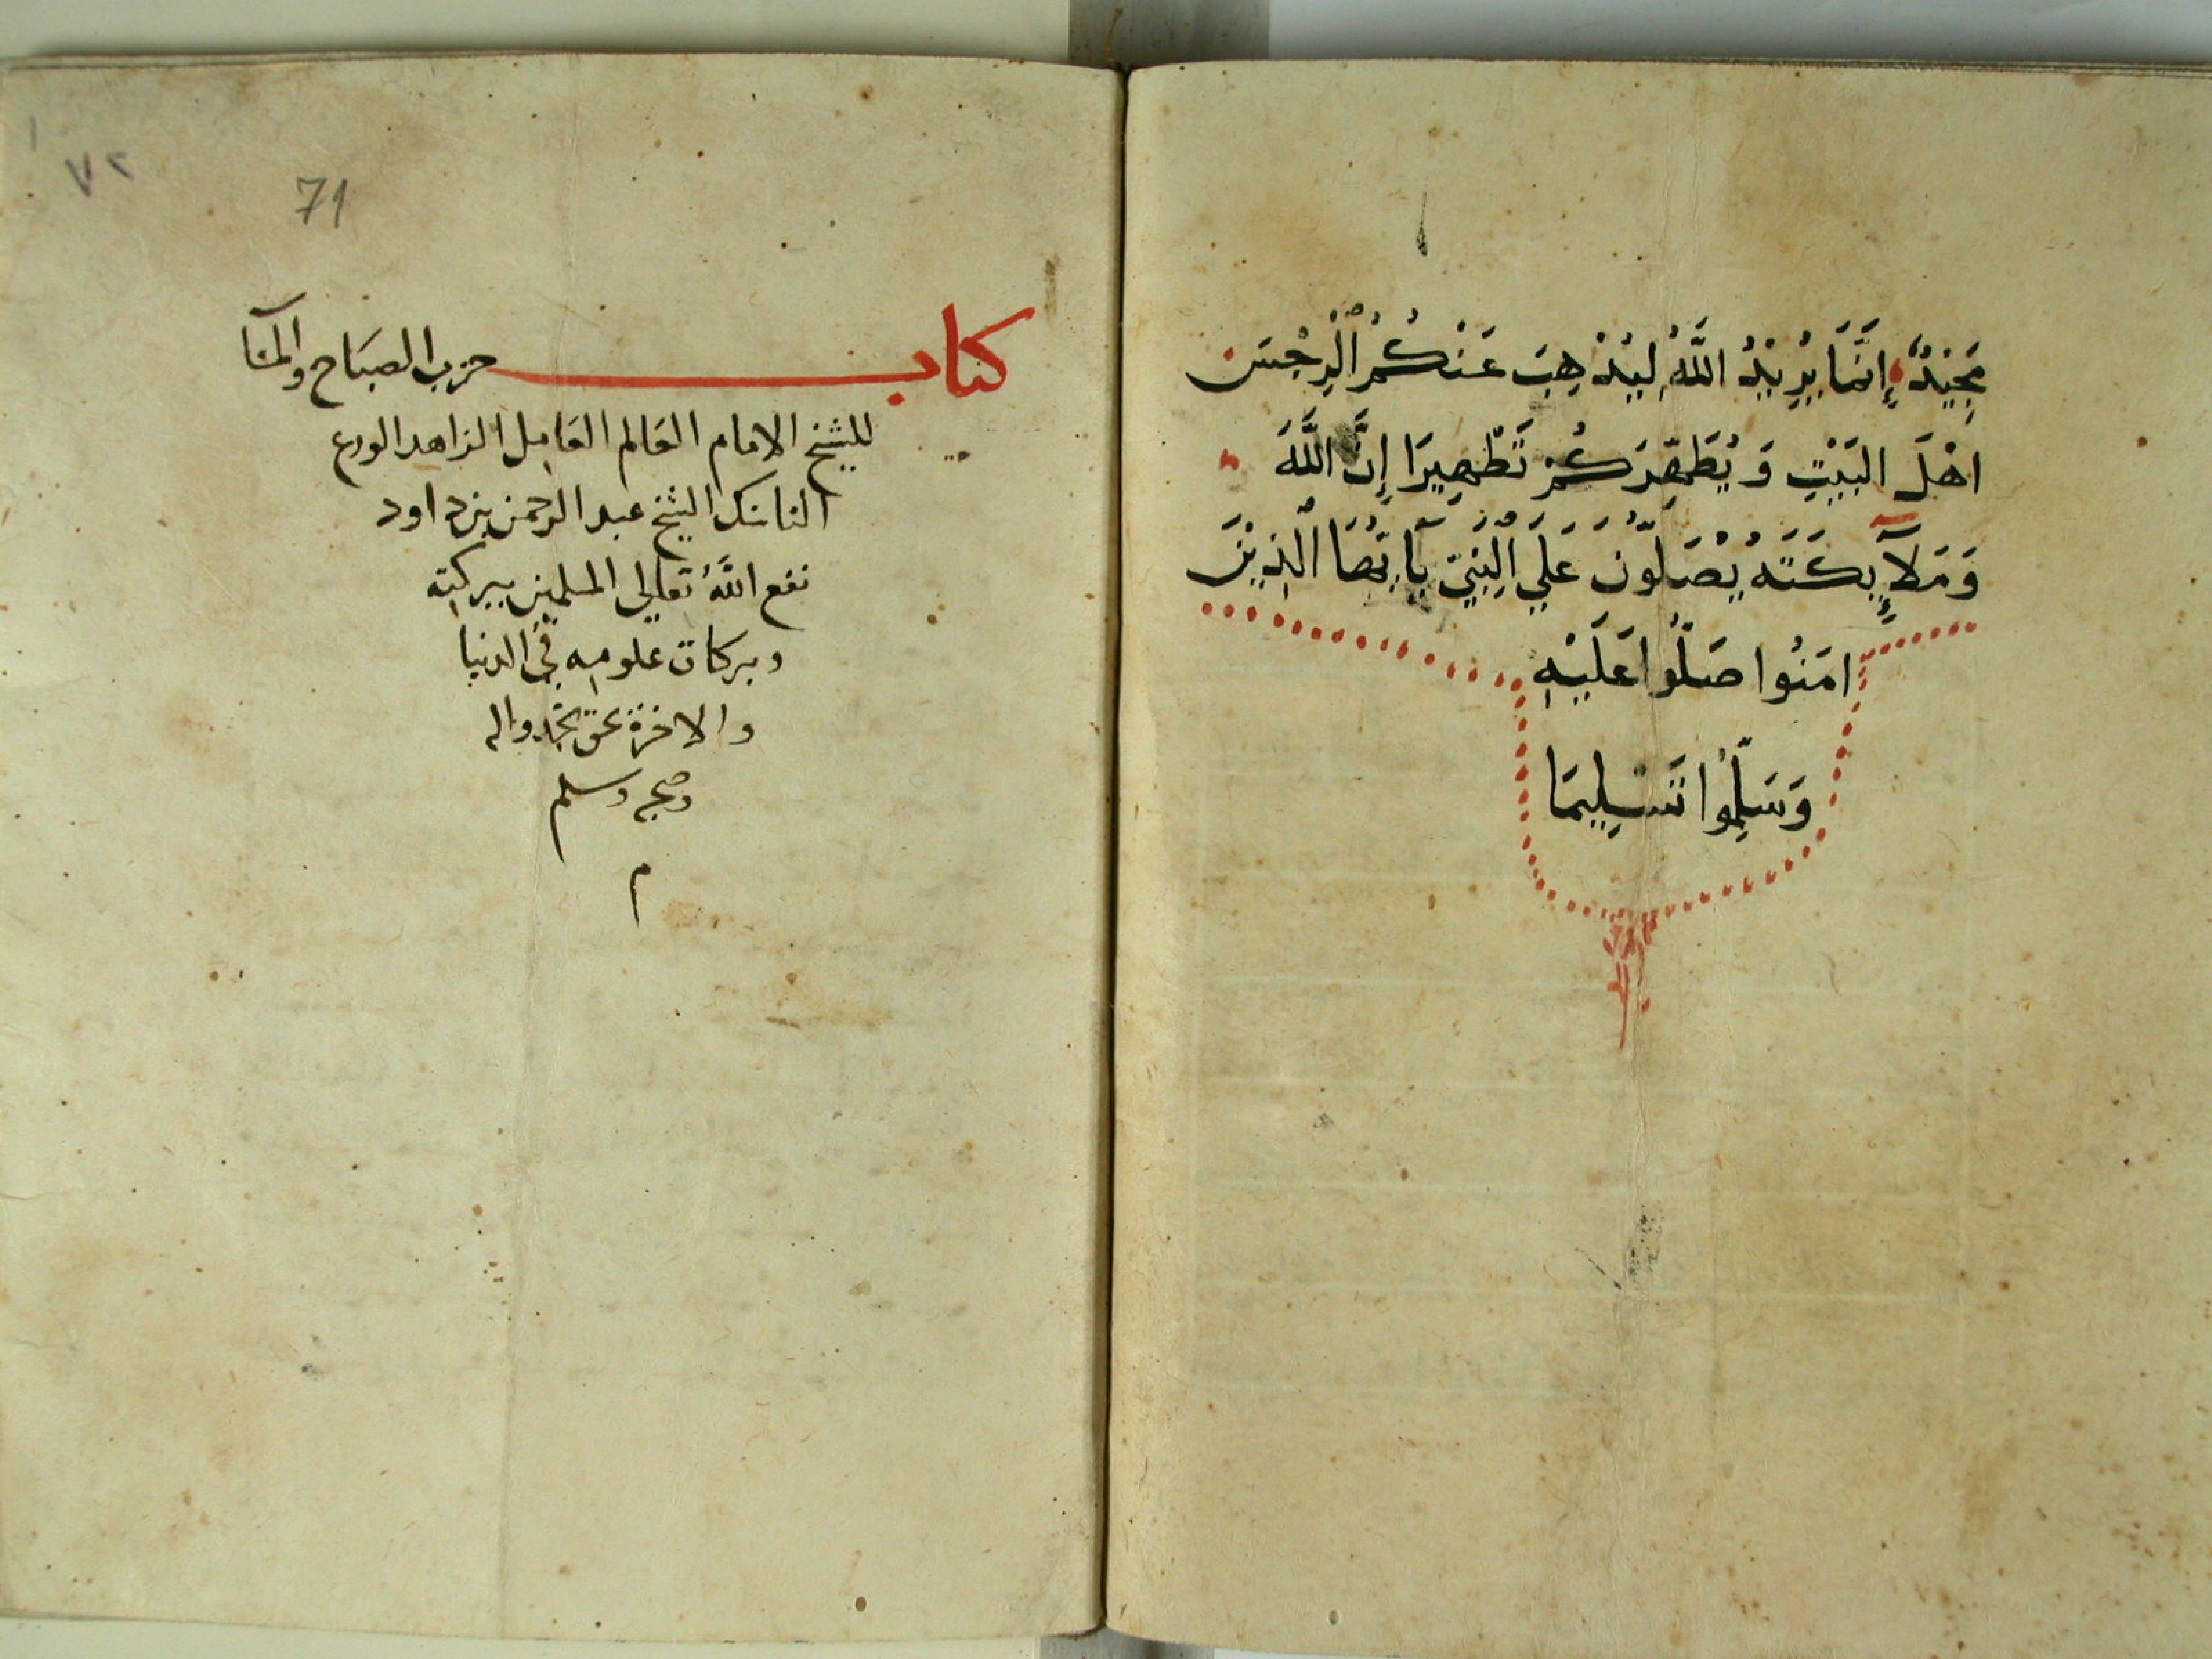 مَجِيْدٌ إِنَّمَا يُرِيْدُ اللَّهُ لِيُذْهِبَ عَنْكُمُ الْرِجْسَ
اهْلَ البَيْتِ وَيُطَهِّرَكُمْ تَطْهِيرَا إِنَّ اللَّهَ
وَمَلَآئِكَتَهُ يُصَلُّونَ عَلَي الْنَبِيّ يَآايُّهَا الْذِيْنَ
امَنُوا صَلُّوا عَلَيْهِ
وَسَلِّمُوا تَسْلِيمَا
٧٢
71
كتاب حزب الصباح والمسا
للشيخ الامام العالم العامل الزاهد الورع
الناسك الشيخ عبد الرحمن بن داود
نفع اللَّهُ تعالى المسلمين ببركته
وبركات علومه في الدنيا
والاخرة بحق محمد واله
وصحبه وسلم
م